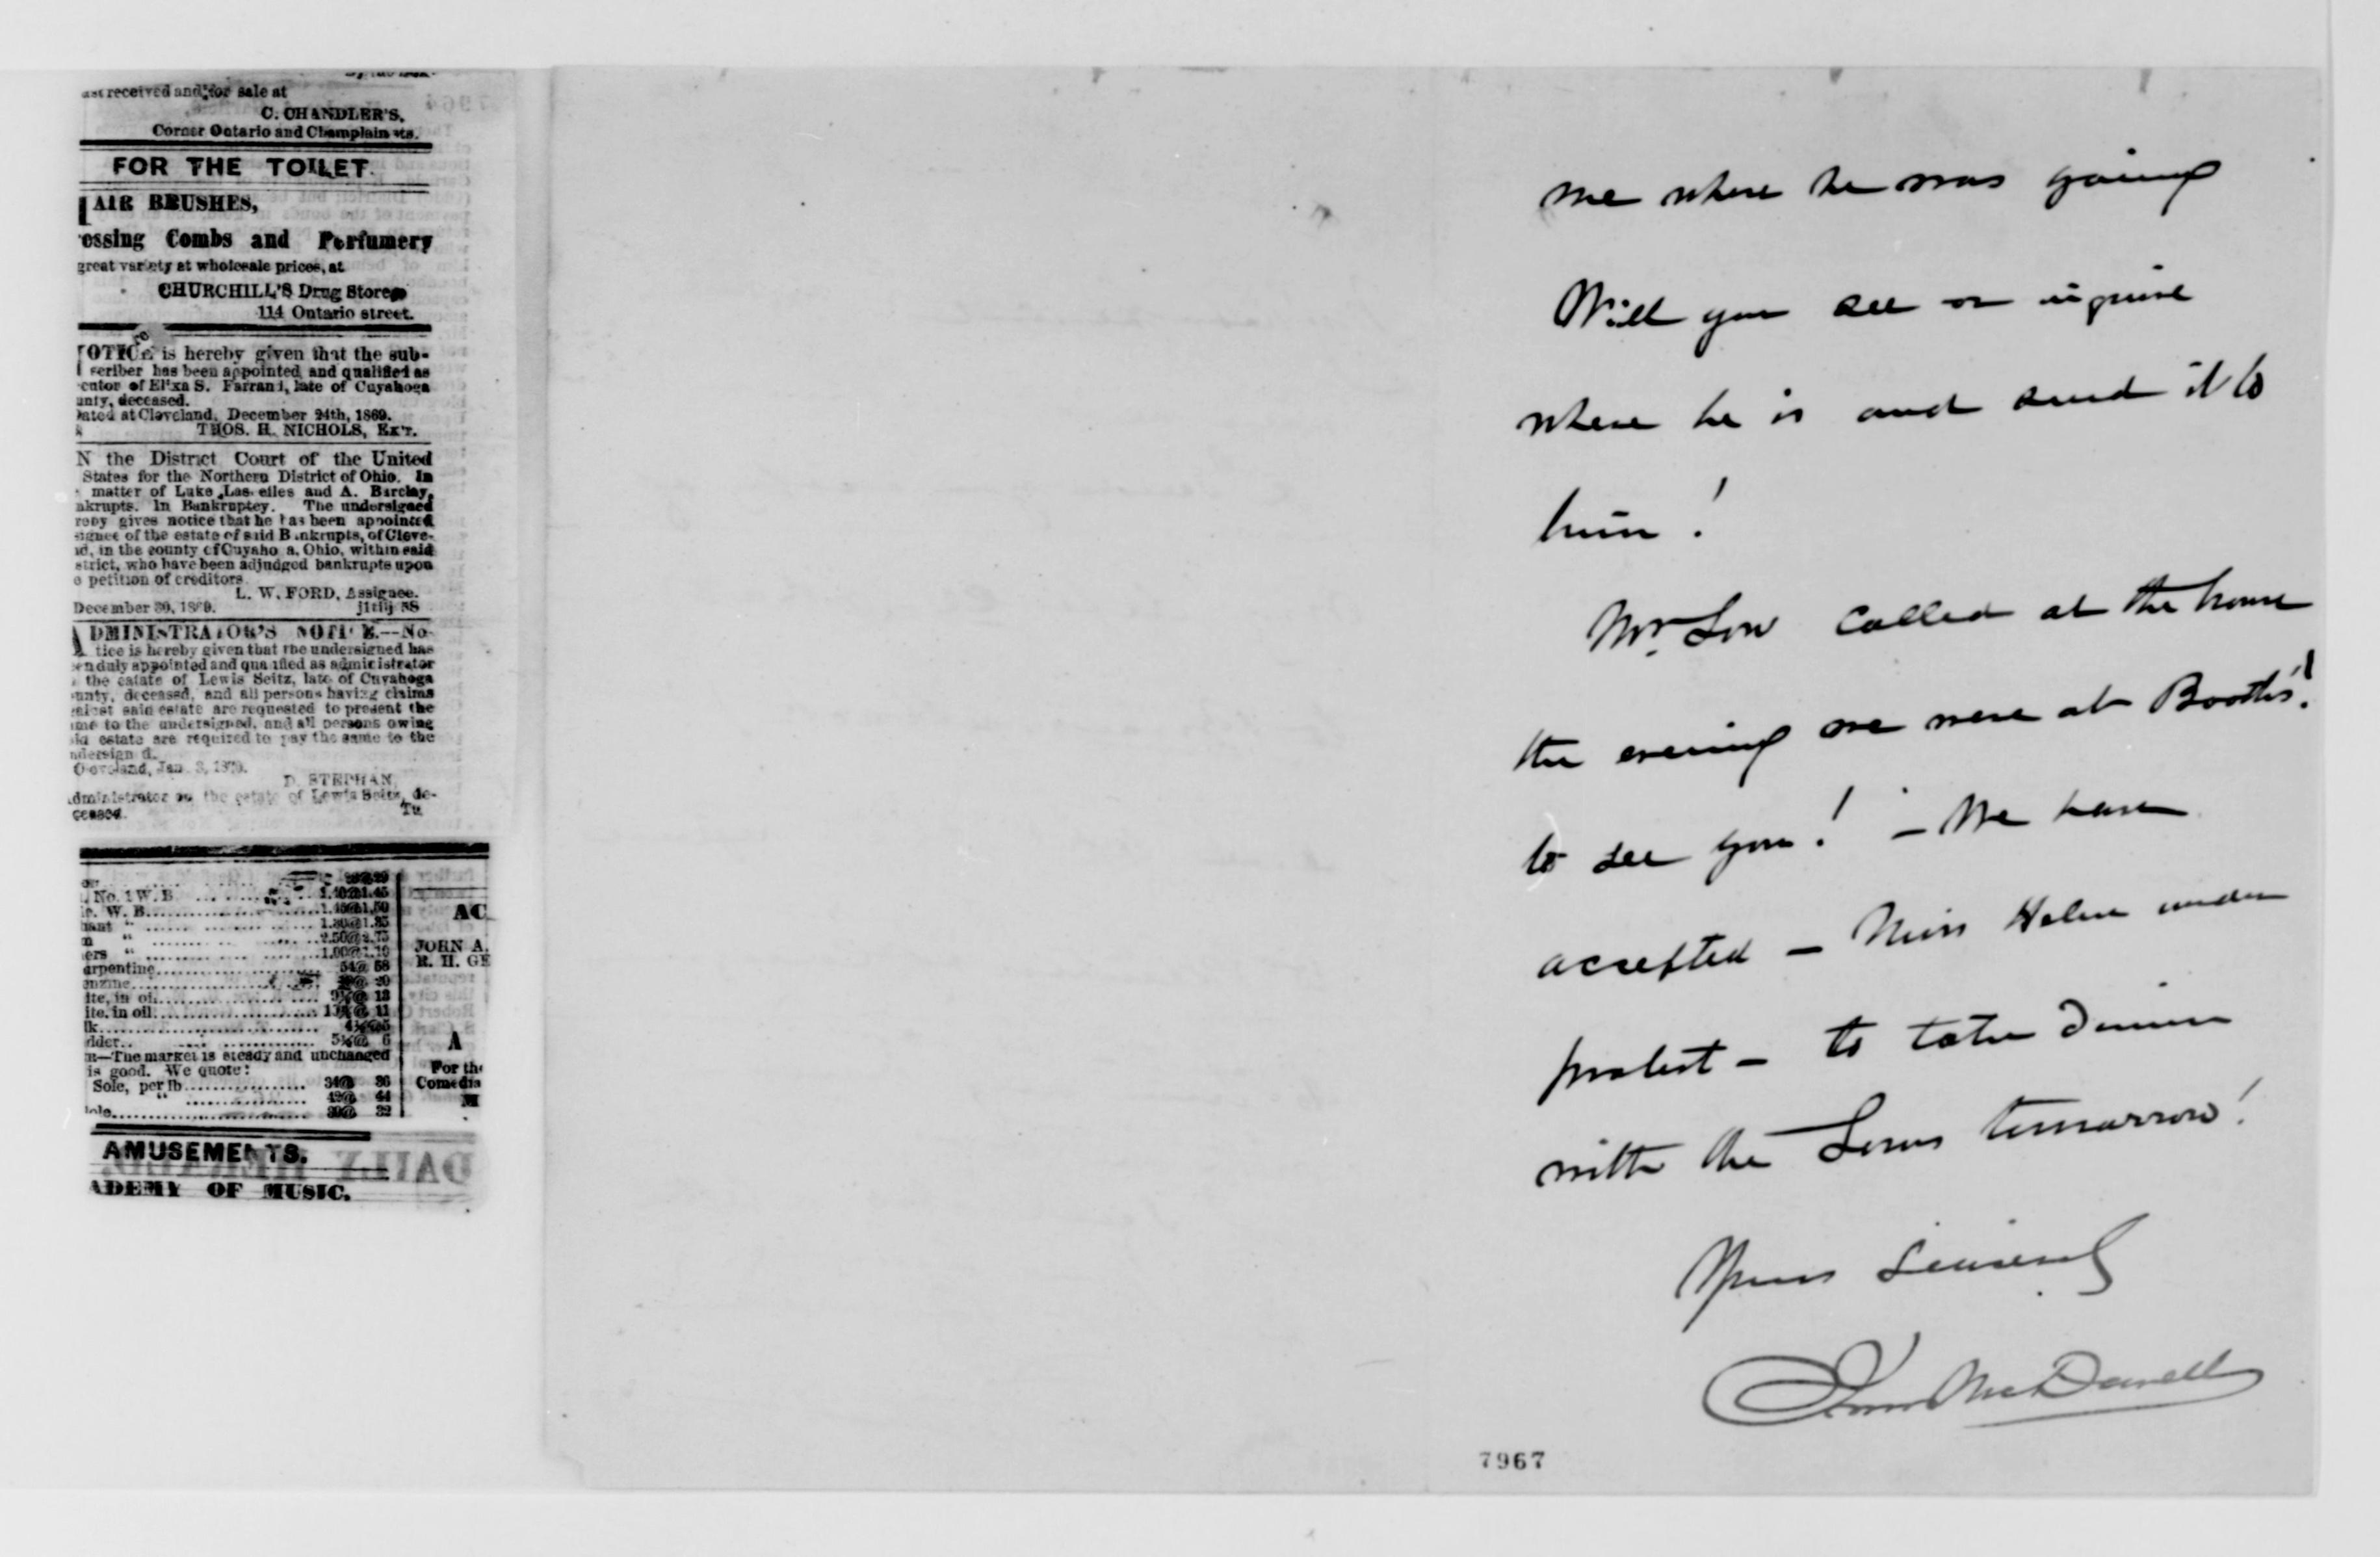 ust received and for sale at
C. CHANDLER'S,
Corner Ontario and Champlain sts.
FOR THE TOILET.
AIR BRUSHES,
essing Combs and Perfumery
great variety at wholesale prices, at
CHURCHILL'S Drug Store
114 Ontario street.
OTICE is hereby given that the sub-
scriber has been appointed and qualified as
cutor of Eliza S. Farrand, late of Cuyahoga
unty, deceased.
Dated at Cleveland, December 24th, 1869.
THOS. H. NICHOLS, Ex'r.
N the District Court of the United
States for the Northern District of Ohio. In
matter of Luke Las elles and A. Barclay,
nkrupts. In Bankruptcy. The undersigned
reby gives notice that he has been appointed
signee of the estate of said B nkrupts, of Cleve-
nd, in the county of Cuyaho a, Ohio, within said
strict, who have been adjudged bankrupts upon
e petition of creditors
L. W. FORD, Assignee.
December 30, 1869.
ADMINISTRATOR'S NOTICE.—No-
tice is hereby given that the undersigned has
en duly appointed and qualified as administrator
the estate of Lewis Seitz, late of Cuyahoga
unty, deceased, and all persons having claims
gainst said estate are requested to present the
ame to the undersigned, and all persons owing
id estate are required to pay the same to the
ndersign d.
Cleveland, Jan. 3, 1870.
D. STEPHAN,
dministrator on the estate of Lewis Seitz, de-
ceased. Tu
No. 1 W. B. 1.40@1.45
W. B. 1.45@1.50
hant " 1.80@1.85
m " 2.50@2.75
ers " 1.00@1.10
urpentine 54@ 58
enzine 20
ite, in oil 13
ite, in oil 11
lk
dder 6
n—The market is steady and unchanged
is good. We quote:
Sole, per lb 34@ 36
" 42@ 44
30@ 32
AC
JOHN A.
R. H. GE
A
For the
Comedia
M
AMUSEMENTS.
ADEMY OF MUSIC.
DAILY HERALD
me where he was going
Will you see or inquire
where he is and send it to
him!
Mr. Low called at the house
the evening we were at Booths'!
to see you! – We have
accepted – Miss Helen under
protest – to take dinner
with the Lows tomorrow!
Yours sincerely
Irvin McDowell
7967